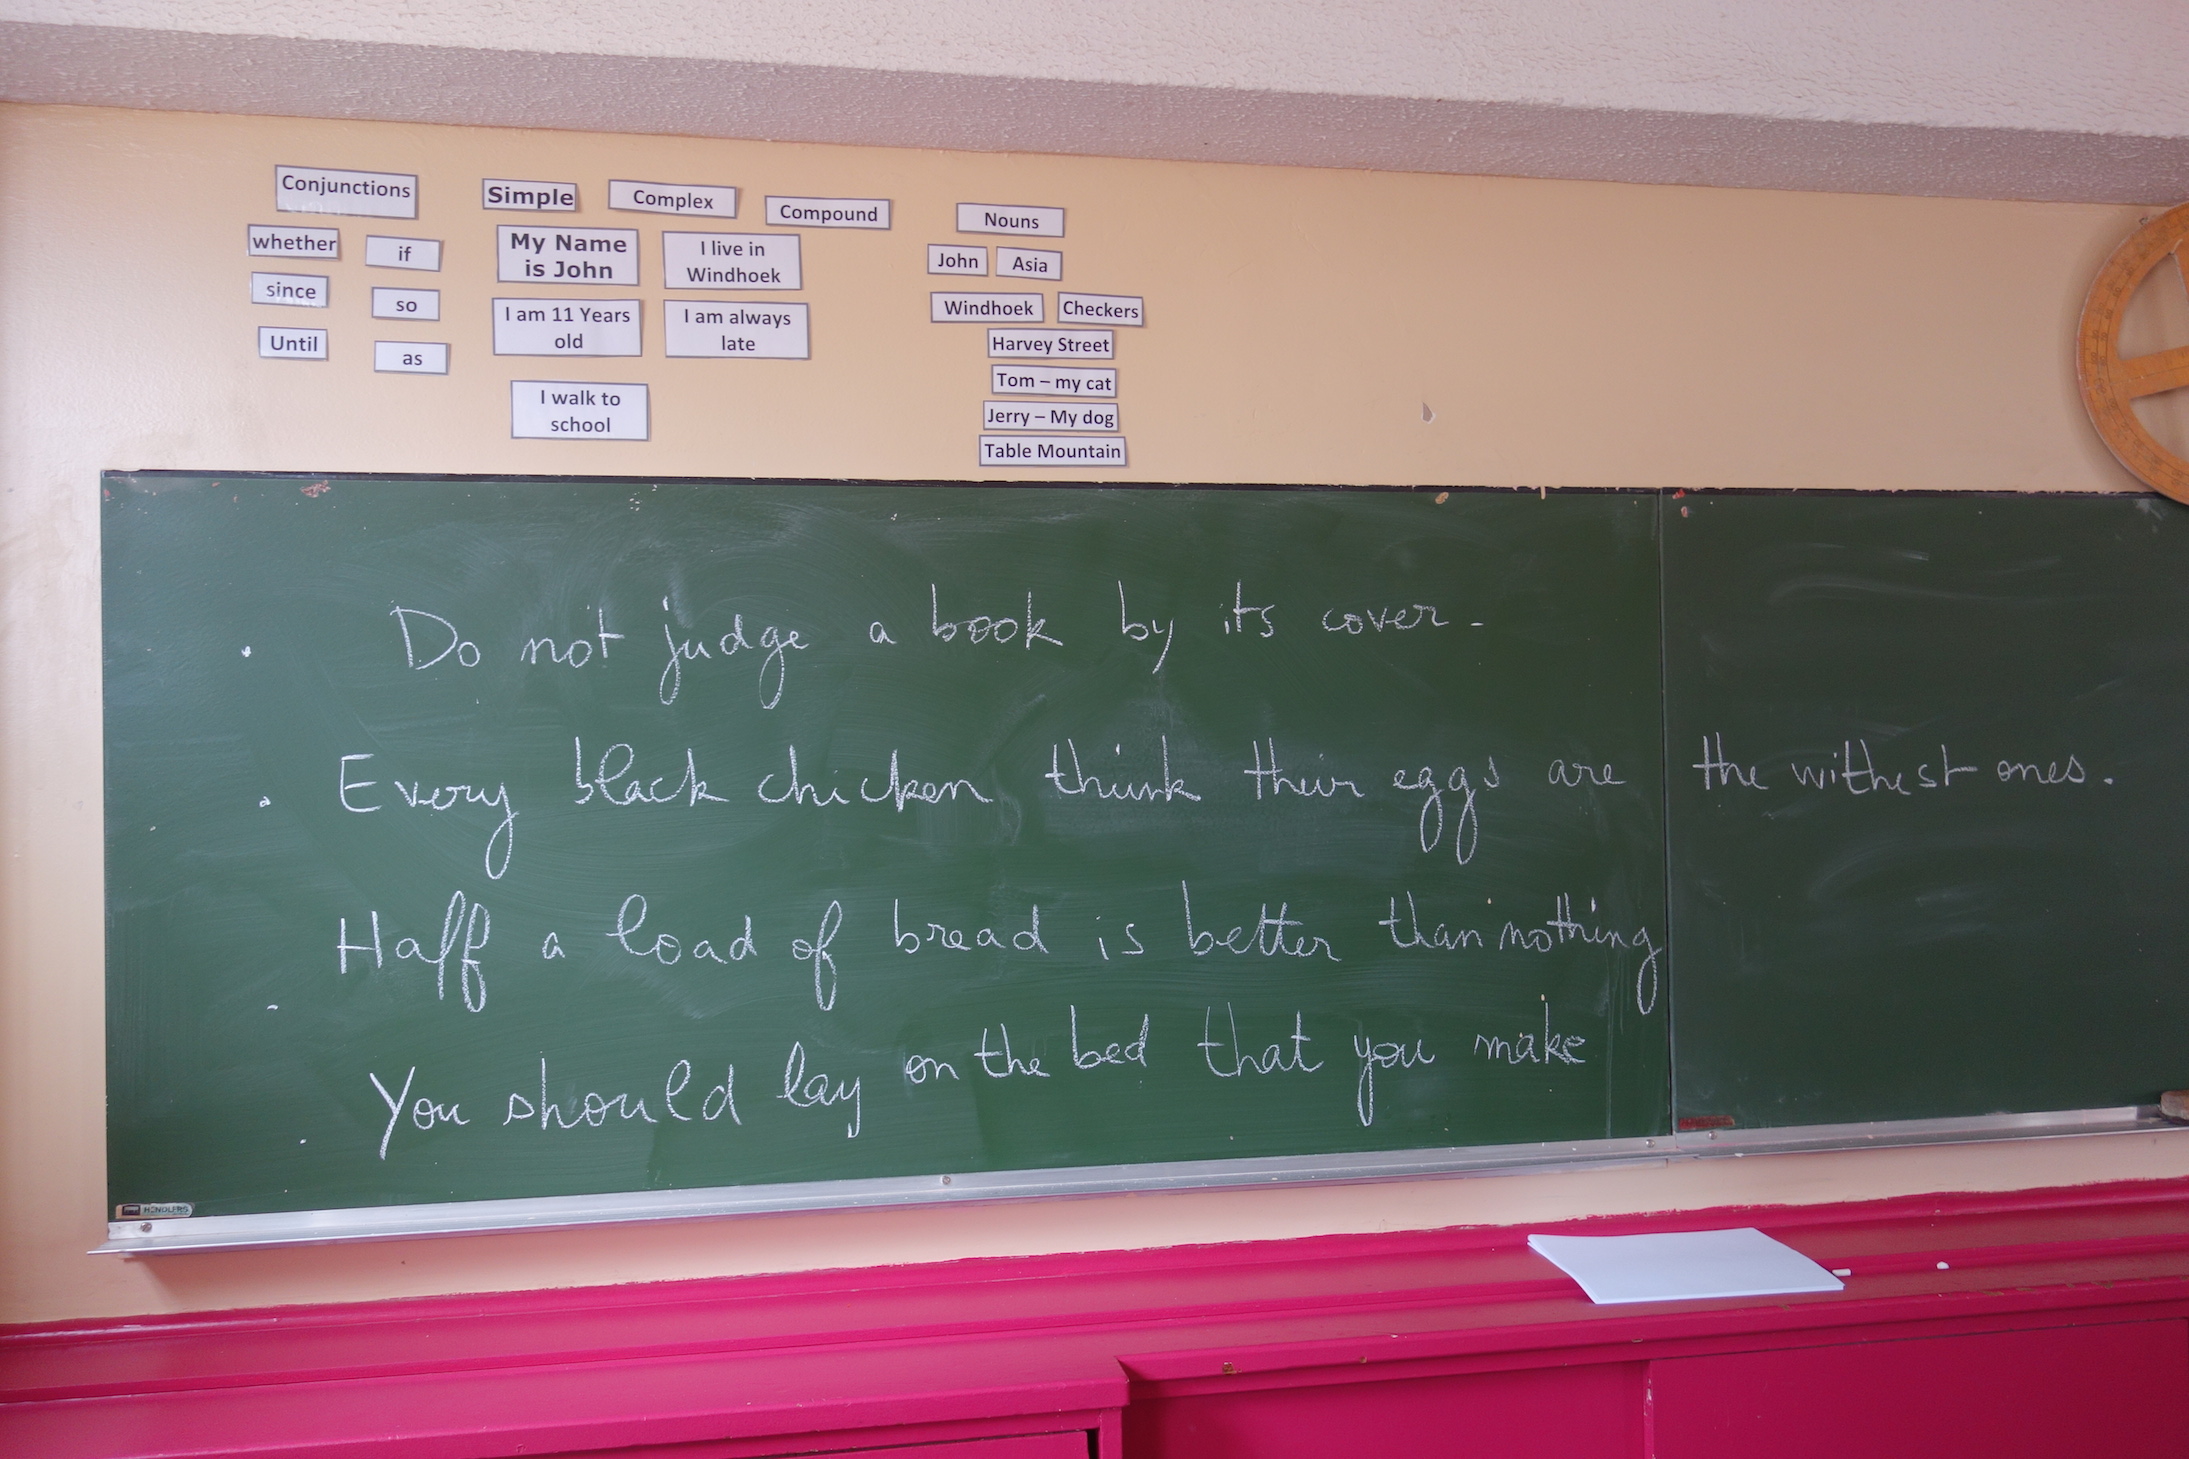 Conjunctions
whether if
since so
Until as
Simple Complex Compound
My Name
is John
I live in
Windhoek
I am 11 Years
old
I am always
late
I walk to
school
Nouns
John Asia
Windhoek Checkers
Harvey Street
Tom – my cat
Jerry – My dog
Table Mountain
. Do not judge a book by its cover.
. Every black chicken think their eggs are the withest ones.
. Half a load of bread is better than nothing
. You should lay on the bed that you make
HENDLERS